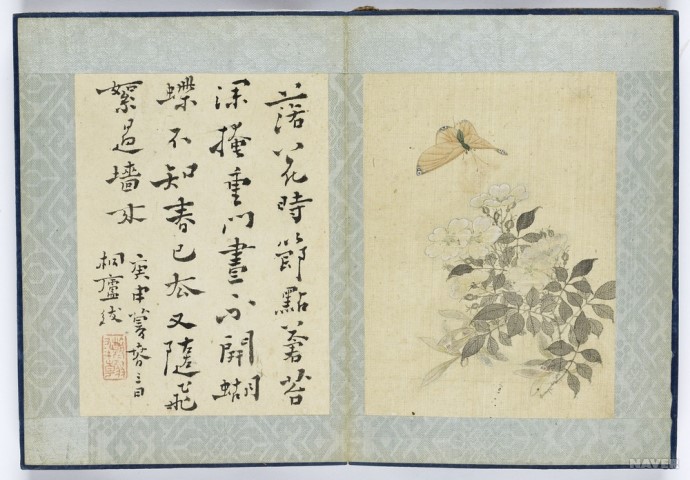 落花時節點蒼苔
深掩重門晝不開蝴
蝶不知春已去又隨飛
絮過墻來
庚申三日
桐廬
NAVER